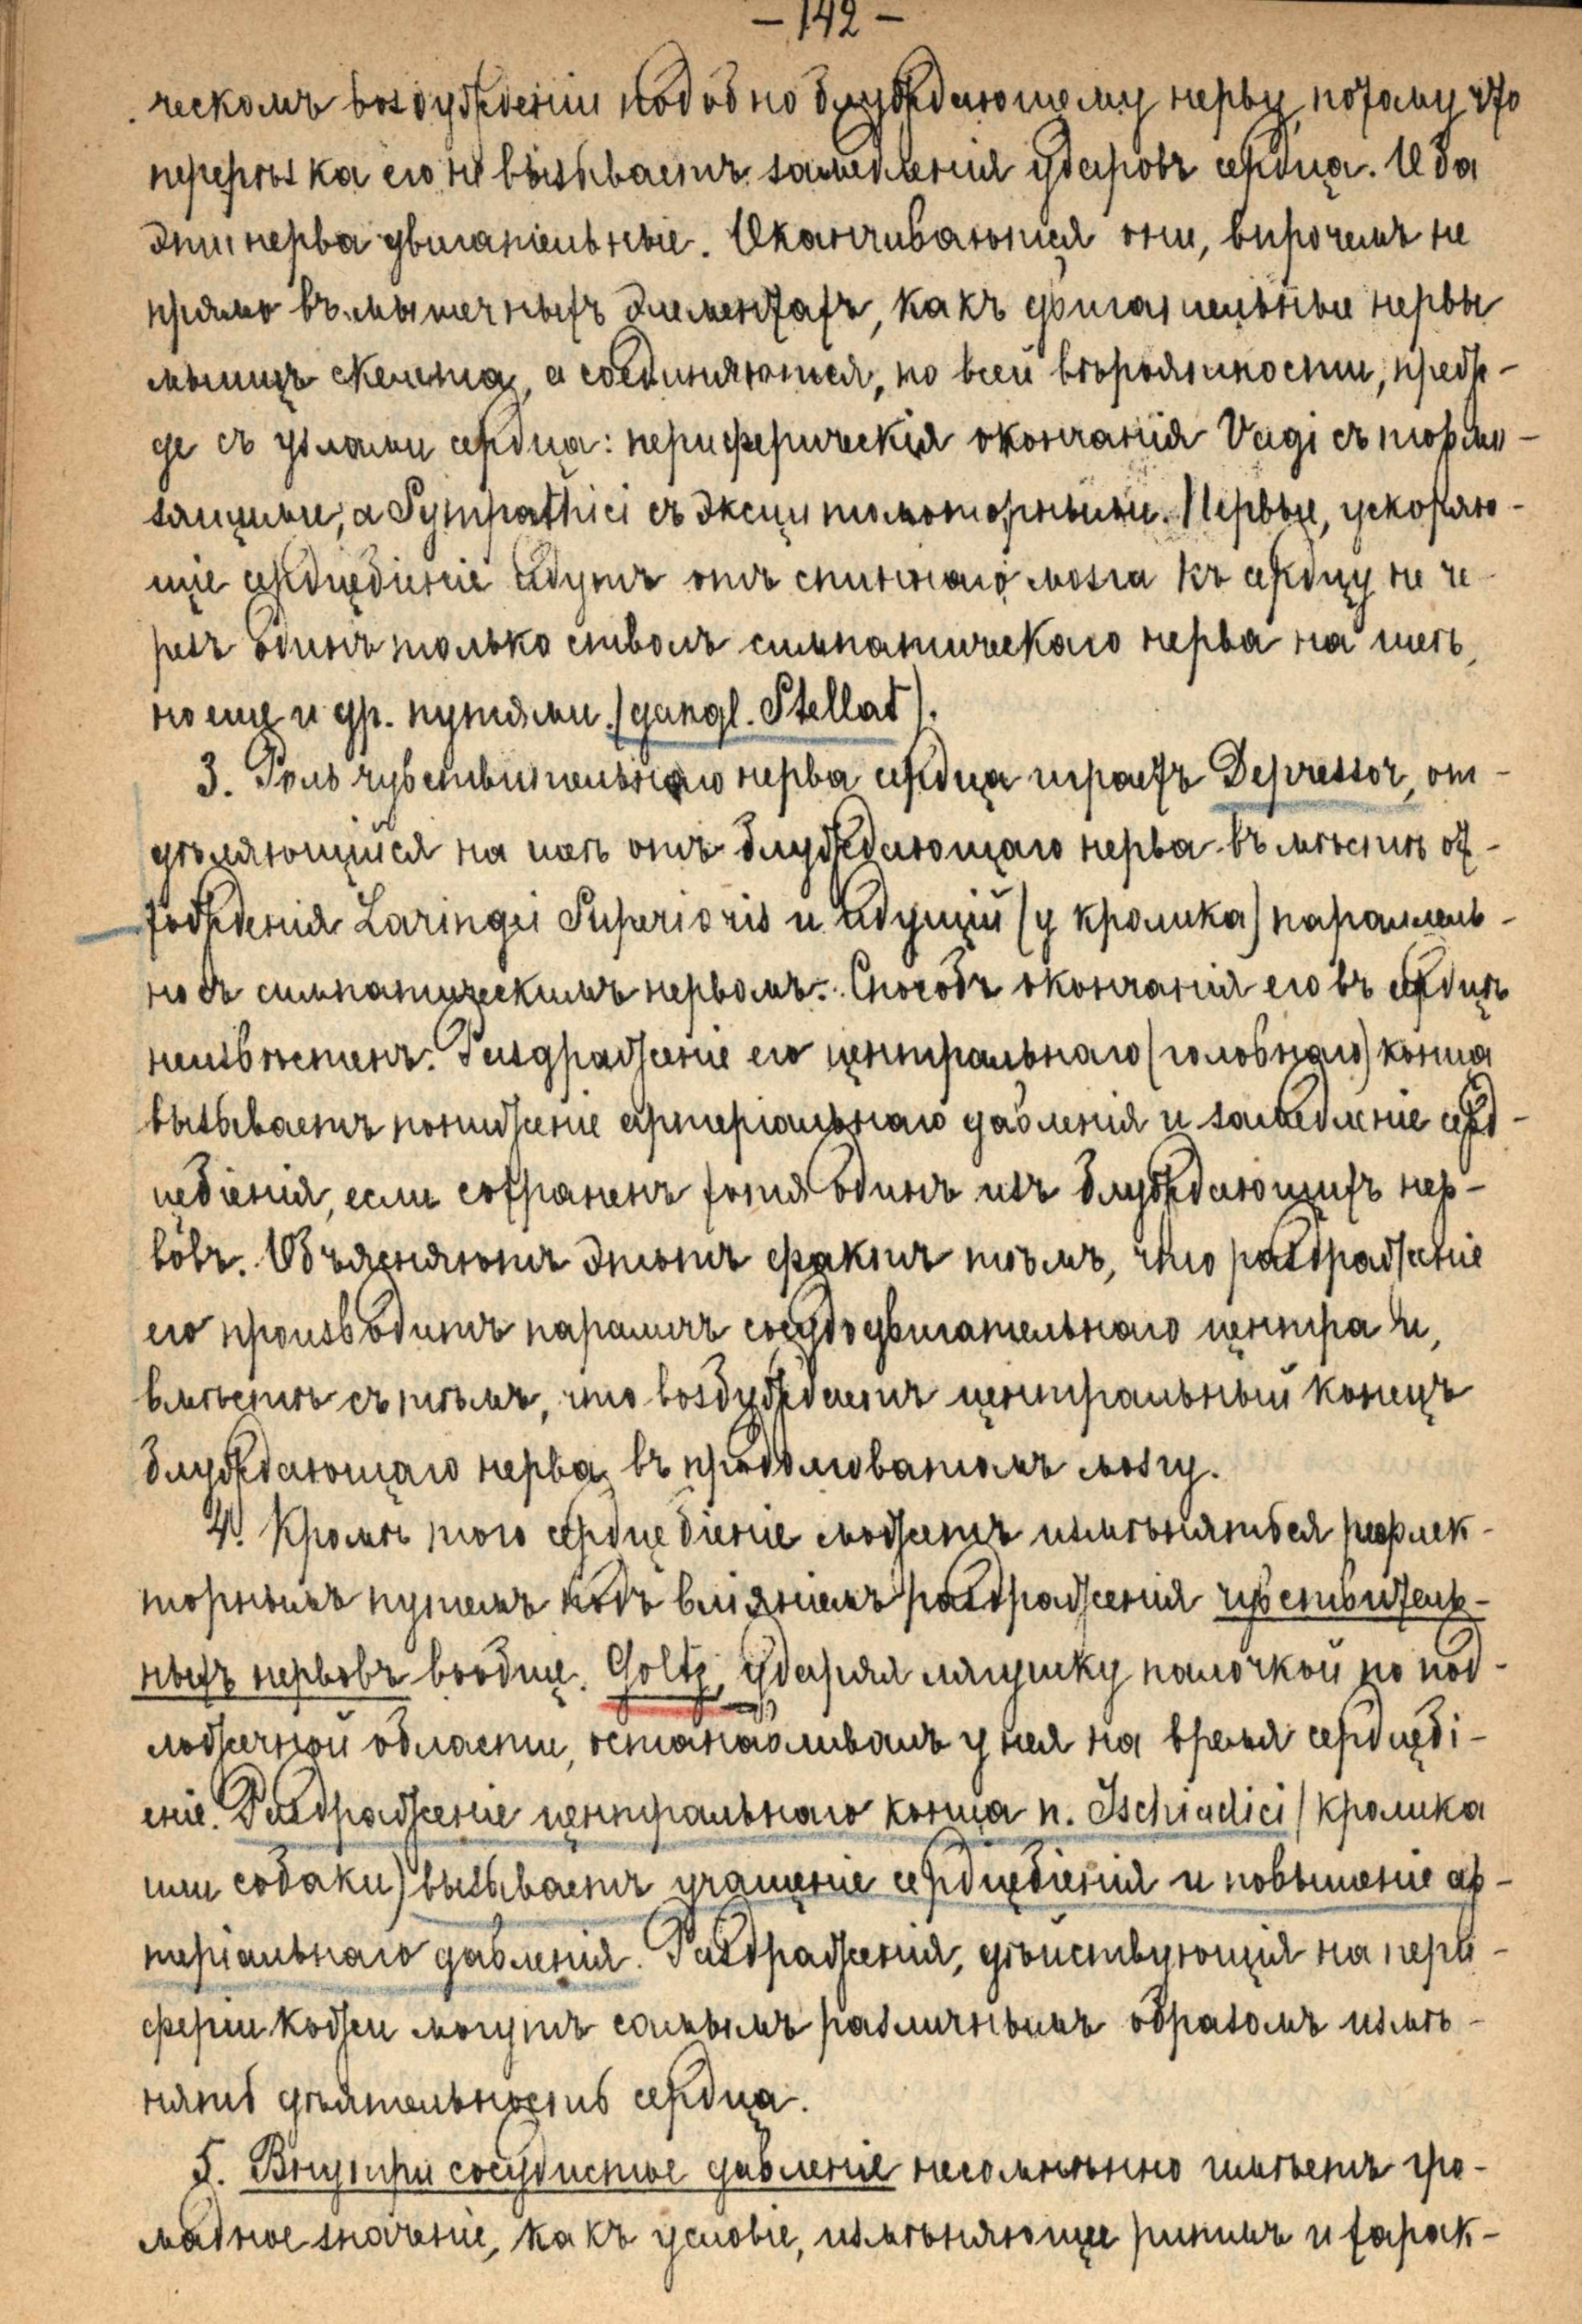 — 142 —
ческомъ возбужденіи подобно блуждающему нерву, потому что
перерѣзка его не вызываетъ замедленія ударовъ сердца. Оба
эти нерва двигательные. Оканчиваются они, впрочемъ не
прямо въ мышечныхъ элементахъ, какъ двигательные нервы
мышцъ скелета, а соединяются, по всей вѣроятности, преж-
де съ узлами сердца: периферическія окончанія Vagi съ тормо-
зящими, а Sympathici съ эксцитомоторными. Нервы, ускоряю-
щіе сердцебіеніе идутъ отъ спиннаго мозга къ сердцу не че-
резъ одинъ только стволъ симпатическаго нерва на шеѣ,
но еще и др. путями. (gangl. Stellat).
3. Роль чувствительнаго нерва сердца играетъ Depressor, от-
дѣляющійся на шеѣ отъ блуждающаго нерва въ мѣстѣ от-
хожденія Laringei Superioris и идущій (у кролика) параллель-
но съ симпатическимъ нервомъ. Способъ окончанія его въ сердцѣ
неизвѣстенъ. Раздраженіе его центральнаго (головнаго) конца
вызываетъ пониженіе артеріальнаго давленія и замедленіе серд-
цебіенія, если сохраненъ хотя одинъ изъ блуждающихъ нер-
вовъ. Объясняютъ этотъ фактъ тѣмъ, что раздраженіе
его производитъ параличъ сосудодвигательнаго центра и,
вмѣстѣ съ тѣмъ, что возбуждаетъ центральный конецъ
блуждающаго нерва въ продолговатомъ мозгу.
4. Кромѣ того сердцебіеніе можетъ измѣняться рефлек-
торнымъ путемъ подъ вліяніемъ раздраженія чувствитель-
ныхъ нервовъ вообще. Goltz, ударяя лягушку палочкой по под-
ложечной области, останавливалъ у нея на время сердцебі-
еніе. Раздраженіе центральнаго конца n. Ischiadici (кролика
или собаки) вызываетъ учащеніе сердцебіенія и повышеніе ар-
теріальнаго давленія. Раздраженія, дѣйствующія на пери-
феріи кожи могутъ самымъ различнымъ образомъ измѣ-
нять дѣятельность сердца.
5. Внутри сосудистое давленіе несомнѣнно имѣетъ гро-
мадное значеніе, какъ условіе, измѣняющее ритмъ и харак-